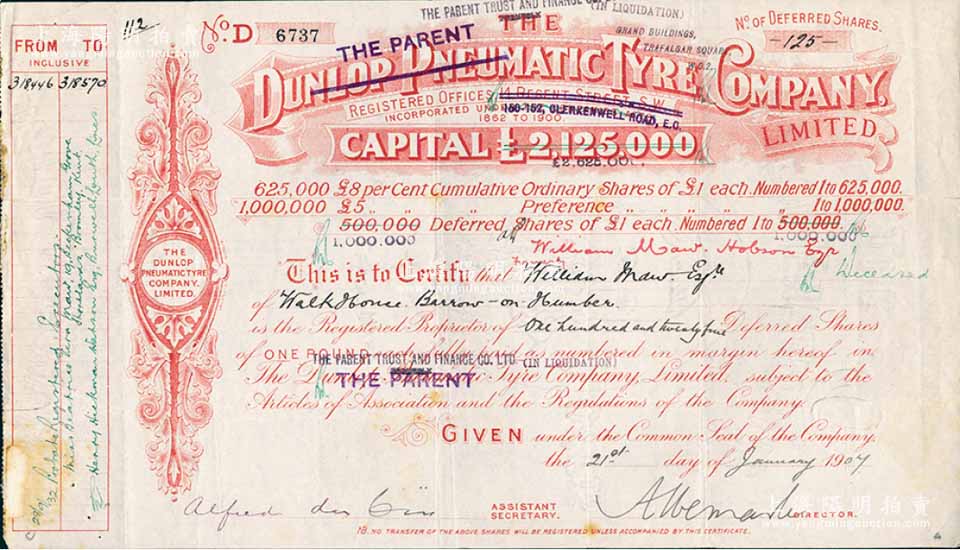 THE PARENT TRUST AND FINANCE CO. LTD.
(IN LIQUIDATION)
112
No. D 6737
THE
No. OF DEFERRED SHARES.
-125-
FROM TO
INCLUSIVE
318446 318570
THE PARENT
GRAND BUILDINGS,
TRAFALGAR SQUARE
W.C.2.
DUNLOP PNEUMATIC TYRE COMPANY.
REGISTERED OFFICES 14 REGENT STREET, S.W.
150-152, CLERKENWELL ROAD, E.C.
1862 TO 1900.
LIMITED
CAPITAL £2,125,000
£2,625,000.
625,000 £8 per Cent Cumulative Ordinary Shares of £1 each. Numbered 1 to 625,000.
1,000,000 £5 " " " Preference " " " 1 to 1,000,000.
500,000 Deferred Shares of £1 each Numbered 1 to 500,000.
1,000,000 1,000,000
William Maw Hobson Esqr
This is to Certify that William Maw Esqre
Deceased
of Walk House Barrow-on-Humber.
is the Registered Proprietor of One hundred and twenty five Deferred Shares
of ONE POUND numbered in margin hereof in
THE PARENT TRUST AND FINANCE CO. LTD. (IN LIQUIDATION)
THE PARENT
The Dunlop Pneumatic Tyre Company, Limited, subject to the
Articles of Association and the Regulations of the Company.
GIVEN under the Common Seal of the Company.
the 21st day of January 1907
THE
DUNLOP
PNEUMATIC TYRE
COMPANY.
LIMITED.
Probate Registered
ASSISTANT
SECRETARY.
DIRECTOR.
NO TRANSFER OF THE ABOVE SHARES WILL BE REGISTERED UNLESS ACCOMPANIED BY THIS CERTIFICATE.
上海陽明拍賣
www.yangmingauction.com